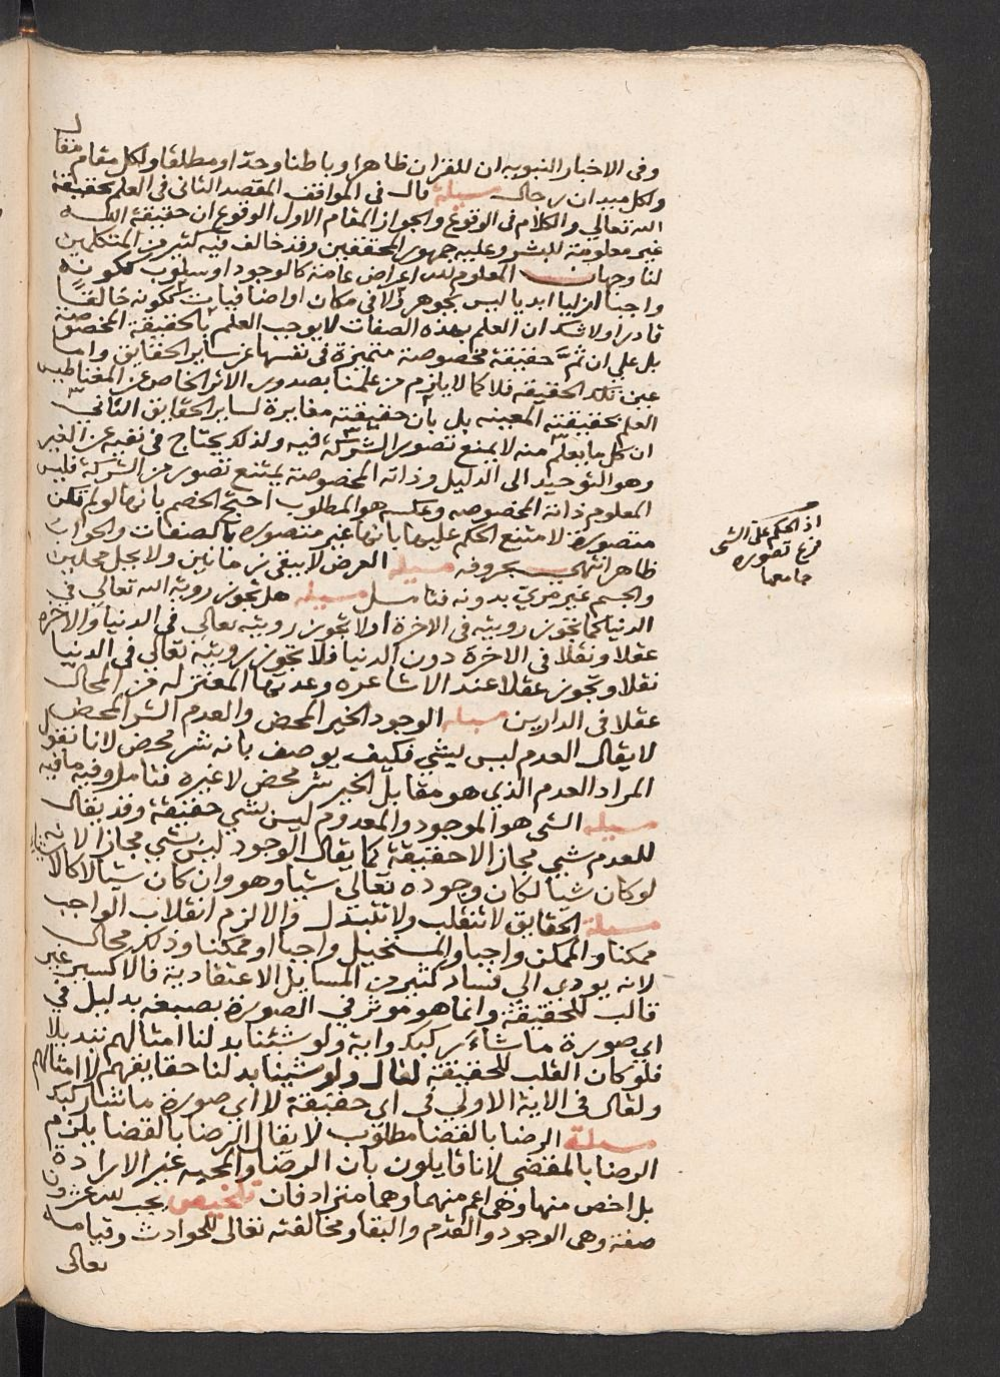 وفى الاخبار النبويه ان للقران ظاهرا وباطنا وحدا ومطلعا ولكل مقام مقال
ولكل ميدان رجال مسيلة قال فى المواقف المقصد الثانى فى العلم بحقيقة
الله تعالي والكلام فى الوقوع والجواز المقام الاول الوقوع ان حقيقة الله
غير معلومة للبشر وعليه جمهور المحققين وقد خالف فيه كثير من المتكلمين
لنا وجهان المعلوم لله اعراض عامة كالوجود او سلوب ككونه
واجبا ازليا ابديا ليس بجوهر ولا فى مكان او اضافيات ككونه خالقا
قادرا ولا شك ان العلم بهذه الصفات لا يوجب العلم بالحقيقة المخصوصة
بل علي ان ثم حقيقة مخصوصة متميزة فى نفسها عن ساير الحقايق واما
عين تلك الحقيقه فلا كما لا يلزم من علمنا بصدور الاثر الخاص عن المغناطيس
العلم بحقيقته المعينه بل بأن حقيقته مغايرة لساير الحقايق الثانى
ان كل ما يعلم منه لا يمنع تصور الشركة فيه ولذلك يحتاج فى نفيه عن الغير
وهو التوحيد الى الدليل وذاته المخصوصة يمتنع تصور من الشركة فليس
المعلوم ذاته المخصوصه وعكسه هو المطلوب احتج الخصم بانها لو لم تكن
متصورة لامتنع الحكم عليها بانها غير متصورة بالصفات والجواب
ظاهر انتهى بحروفه مسيلة العرض لا يبقى زمانين ولا يحل محلين
والجسم غير مرئ بدونه فتامل مسيله هل تجوز روية الله تعالي في
الدنيا كما تجوز رويته فى الاخرة او لا تجوز رويته تعالي فى الدنيا والاخرة
عقلا ونقلا فى الاخرة دون الدنيا فلا تجوز رويته تعالي فى الدنيا
نقلا وتجوز عقلا عند الاشاعره وعدتها المعتزله من المحال
عقلا فى الدارين مسيله الوجود الخير المحض والعدم الشر المحض
لا يقال العدم ليس بشي فكيف يوصف بانه شر محض لانا نقول
المراد العدم الذي هو مقابل الخير شر محض لا غيره فتامل وفيه ما فيه
مسيله الشى هو الموجود والمعدوم ليس بشي حقيقة وقد يقال
للعدم شي مجازا لا حقيقة كما يقال الوجود ليس بشي مجازا
لو كان شيا لكان وجوده تعالي شيا وهو وان كان شيا لا كالاشيا
مسيلة الحقايق لا تنقلب ولا تتبدل والا لزم انقلاب الواجب
ممكنا والممكن واجبا والمستحيل واجبا او ممكنا وذلك محال
لانه يودي الي فساد كثير من المسايل الاعتقادية فالاكسير غير
قالب للحقيقة وانما هو موثر في الصورة بصبغه بدليل في
اي صورة ما شاء ركبك واية ولو شئنا بدلنا امثالهم تبديلا
فلو كان القلب للحقيقة لقال ولو شينا بدلنا حقايقهم لا امثالهم
ولقال فى الاية الاولي في اي حقيقة لا اي صورة ما شا ركبك
مسيلة الرضا بالقضا مطلوب لا يقال الرضا بالقضا يلزم
الرضا بالمقضي لانا قايلون بان الرضا والمحبه غير الارادة
بل اخص منها وهي اعم منهما وهما مترادفان تلخيص يجب لله عشرون
صفة وهي الوجود والقدم والبقا ومخالفته تعالى للحوادث وقيامه
تعالى
اذ الحكم على الشى
فرع تصوره
جامعها